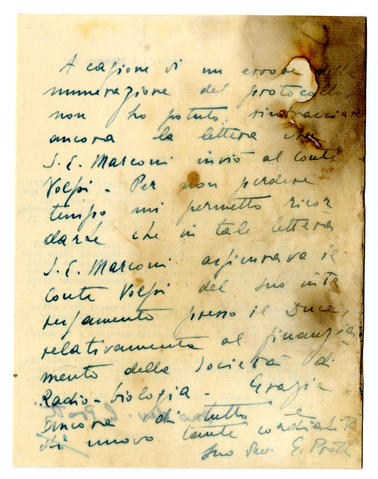 A cagione di un errore nella
numerazione del protocollo,
non ho potuto rintracciare
ancora la lettera che
S. E. Marconi inviò al Conte
Volpi - Per non perdere
tempo mi permetto ricor
darle che in tale lettera
S. E. Marconi
Conte Volpi del suo inte
ressamento presso il Duce,
relativamente al finanzia
mento della Società di
Radio-biologia - Grazie
ancora di tutto e
di nuovo tante cordialità
Suo dev. G.